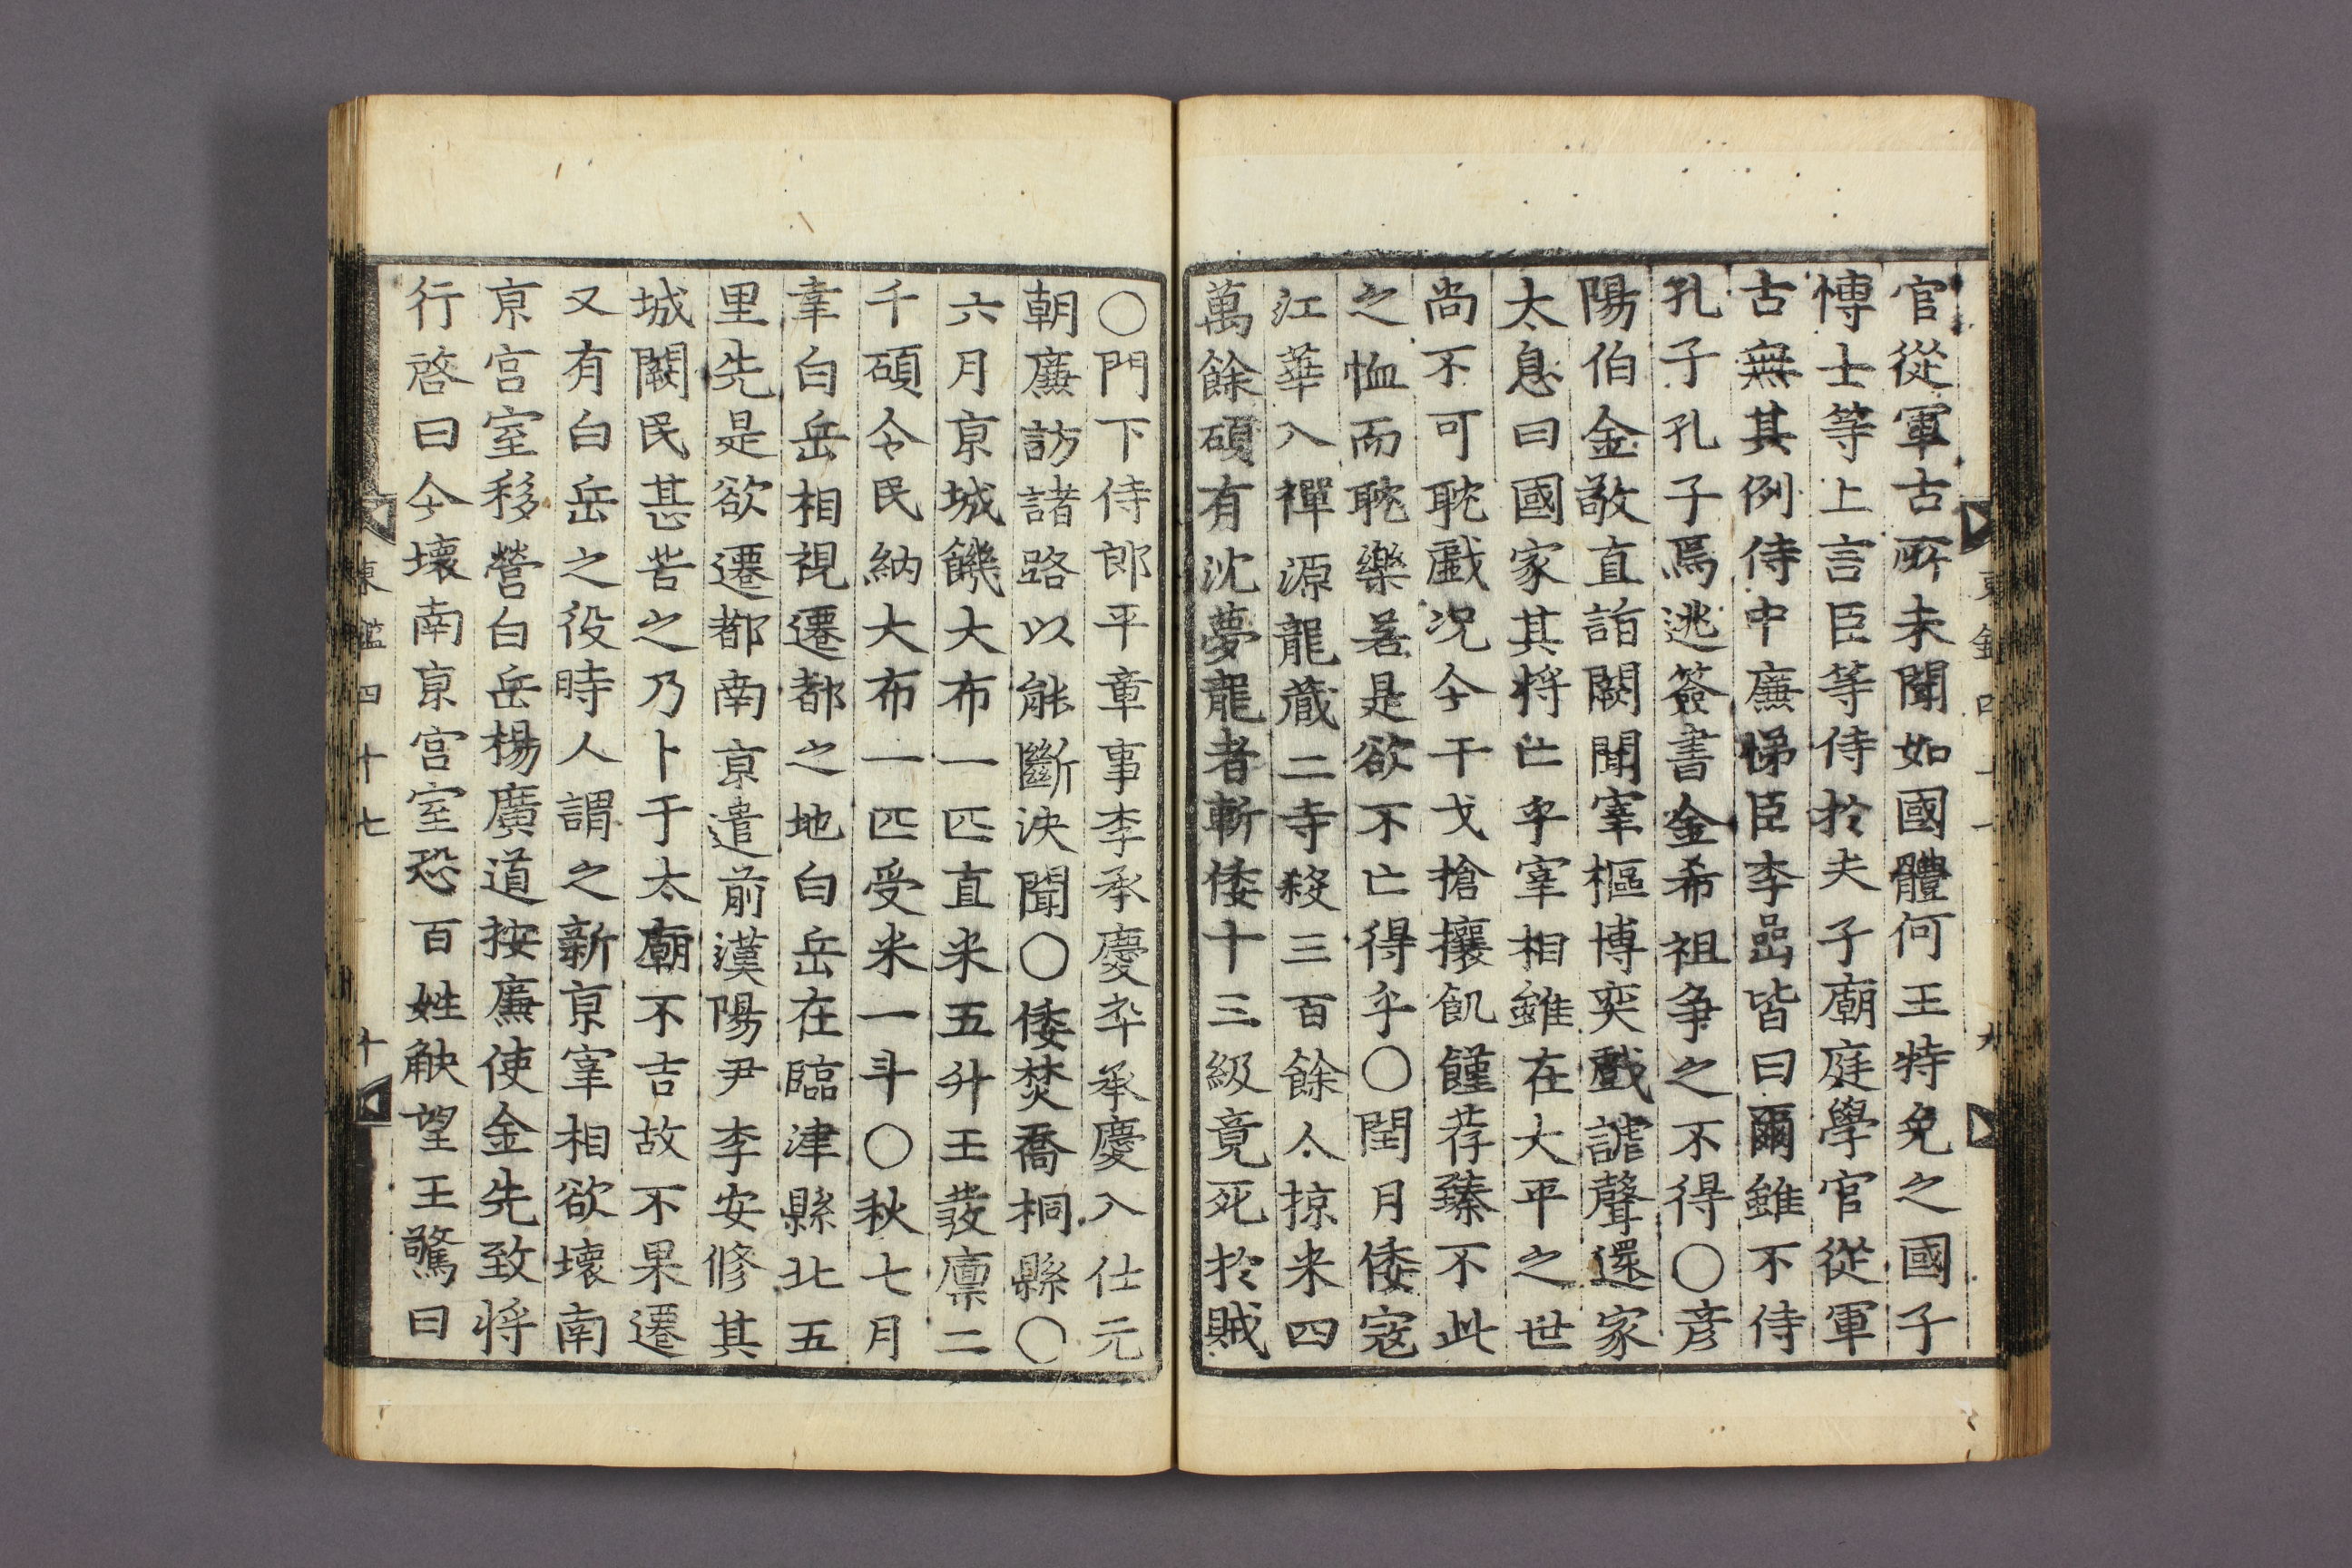 官從軍古所未聞如國體何王特免之國子
博士等上言臣等侍於夫子廟庭學官從軍
古無其例侍中廉悌臣李嵒皆曰爾雖不侍
孔子孔子焉逃簽書金希祖爭之不得○彦
陽伯金敬直詣闕聞宰樞博奕戲謔聲還家
太息曰國家其將亡乎宰相雖在大平之世
尚不可耽戲况今干戈搶攘飢饉荐臻不此
之恤而耽樂若是欲不亡得乎○閏月倭寇
江華入禪源龍藏二寺殺三百餘人掠米四
萬餘碩有沈夢龍者斬倭十三級竟死於賊
東鑑四十七
九
○門下侍郎平章事李承慶卒承慶入仕元
朝廉訪諸路以能斷決聞○倭焚喬桐縣○
六月京城饑大布一匹直米五升王發廩二
千碩令民納大布一匹受米一斗○秋七月
幸白岳相視遷都之地白岳在臨津縣北五
里先是欲遷都南京遣前漢陽尹李安修其
城闕民甚苦之乃卜于太廟不吉故不果遷
又有白岳之役時人謂之新京宰相欲壞南
京宮室移營白岳楊廣道按廉使金先致將
行啓曰今壞南京宮室恐百姓觖望王驚曰
東鑑四十七
十